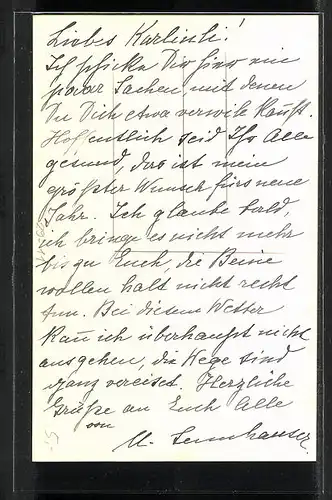 Liebes Karlinli!
Ich schicke Dir hier ein
paar Sachen, mit denen
Du Dich etwa verwile kañst.
Hoffentlich seid Ihr Alle
gesund, das ist mein
größter Wunsch fürs neue
Jahr. Ich glaube bald,
ich bringe es nicht mehr
bis zu Euch, die Beine
wollen halt nicht recht
tun. Bei diesem Wetter
kañ ich überhaupt nicht
ausgehen, die Wege sind
ganz vereiset. Herzliche
Grüße an Euch Alle
von